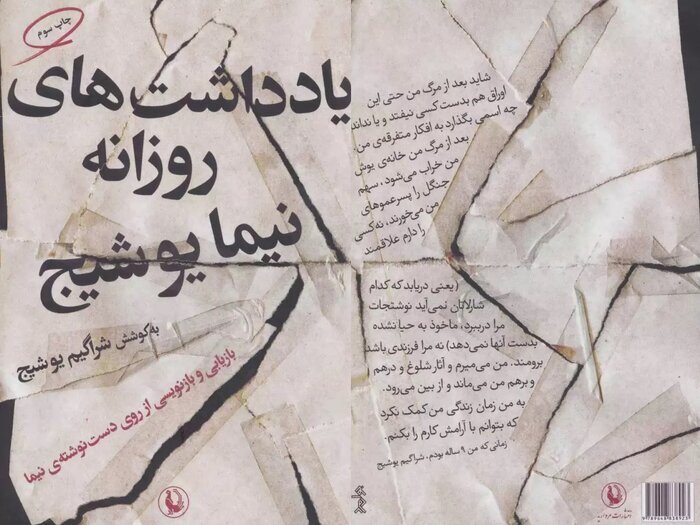 چاپ سوم
یادداشت‌های
روزانه
نیما یوشیج
به‌کوشش شراگیم یوشیج
بازیابی و بازنویسی از روی دست‌نوشته‌ی نیما
شاید بعد از مرگ من حتی این
اوراق هم بدست کسی نیفتد و یا نداند
چه اسمی بگذارد به افکار متفرقه‌ی من.
بعد از مرگ من خانه‌ی یوش
من خراب می‌شود، سهم
جنگل را پسرعموهای
من می‌خورند، نه کسی
را دارم علاقمند
(یعنی دریابد که کدام
شارلاتان نمی‌آید نوشتجات
مرا درببرد، ماخوذ به حیا نشده
بدست آنها نمی‌دهد) نه مرا فرزندی باشد
برومند. من می‌میرم و آثار شلوغ و درهم
و برهم من می‌ماند و از بین می‌رود.
به من زمان زندگی من کمک نکرد
که بتوانم با آرامش کارم را بکنم.
زمانی که من ۹ ساله بودم. شراگیم یوشیج